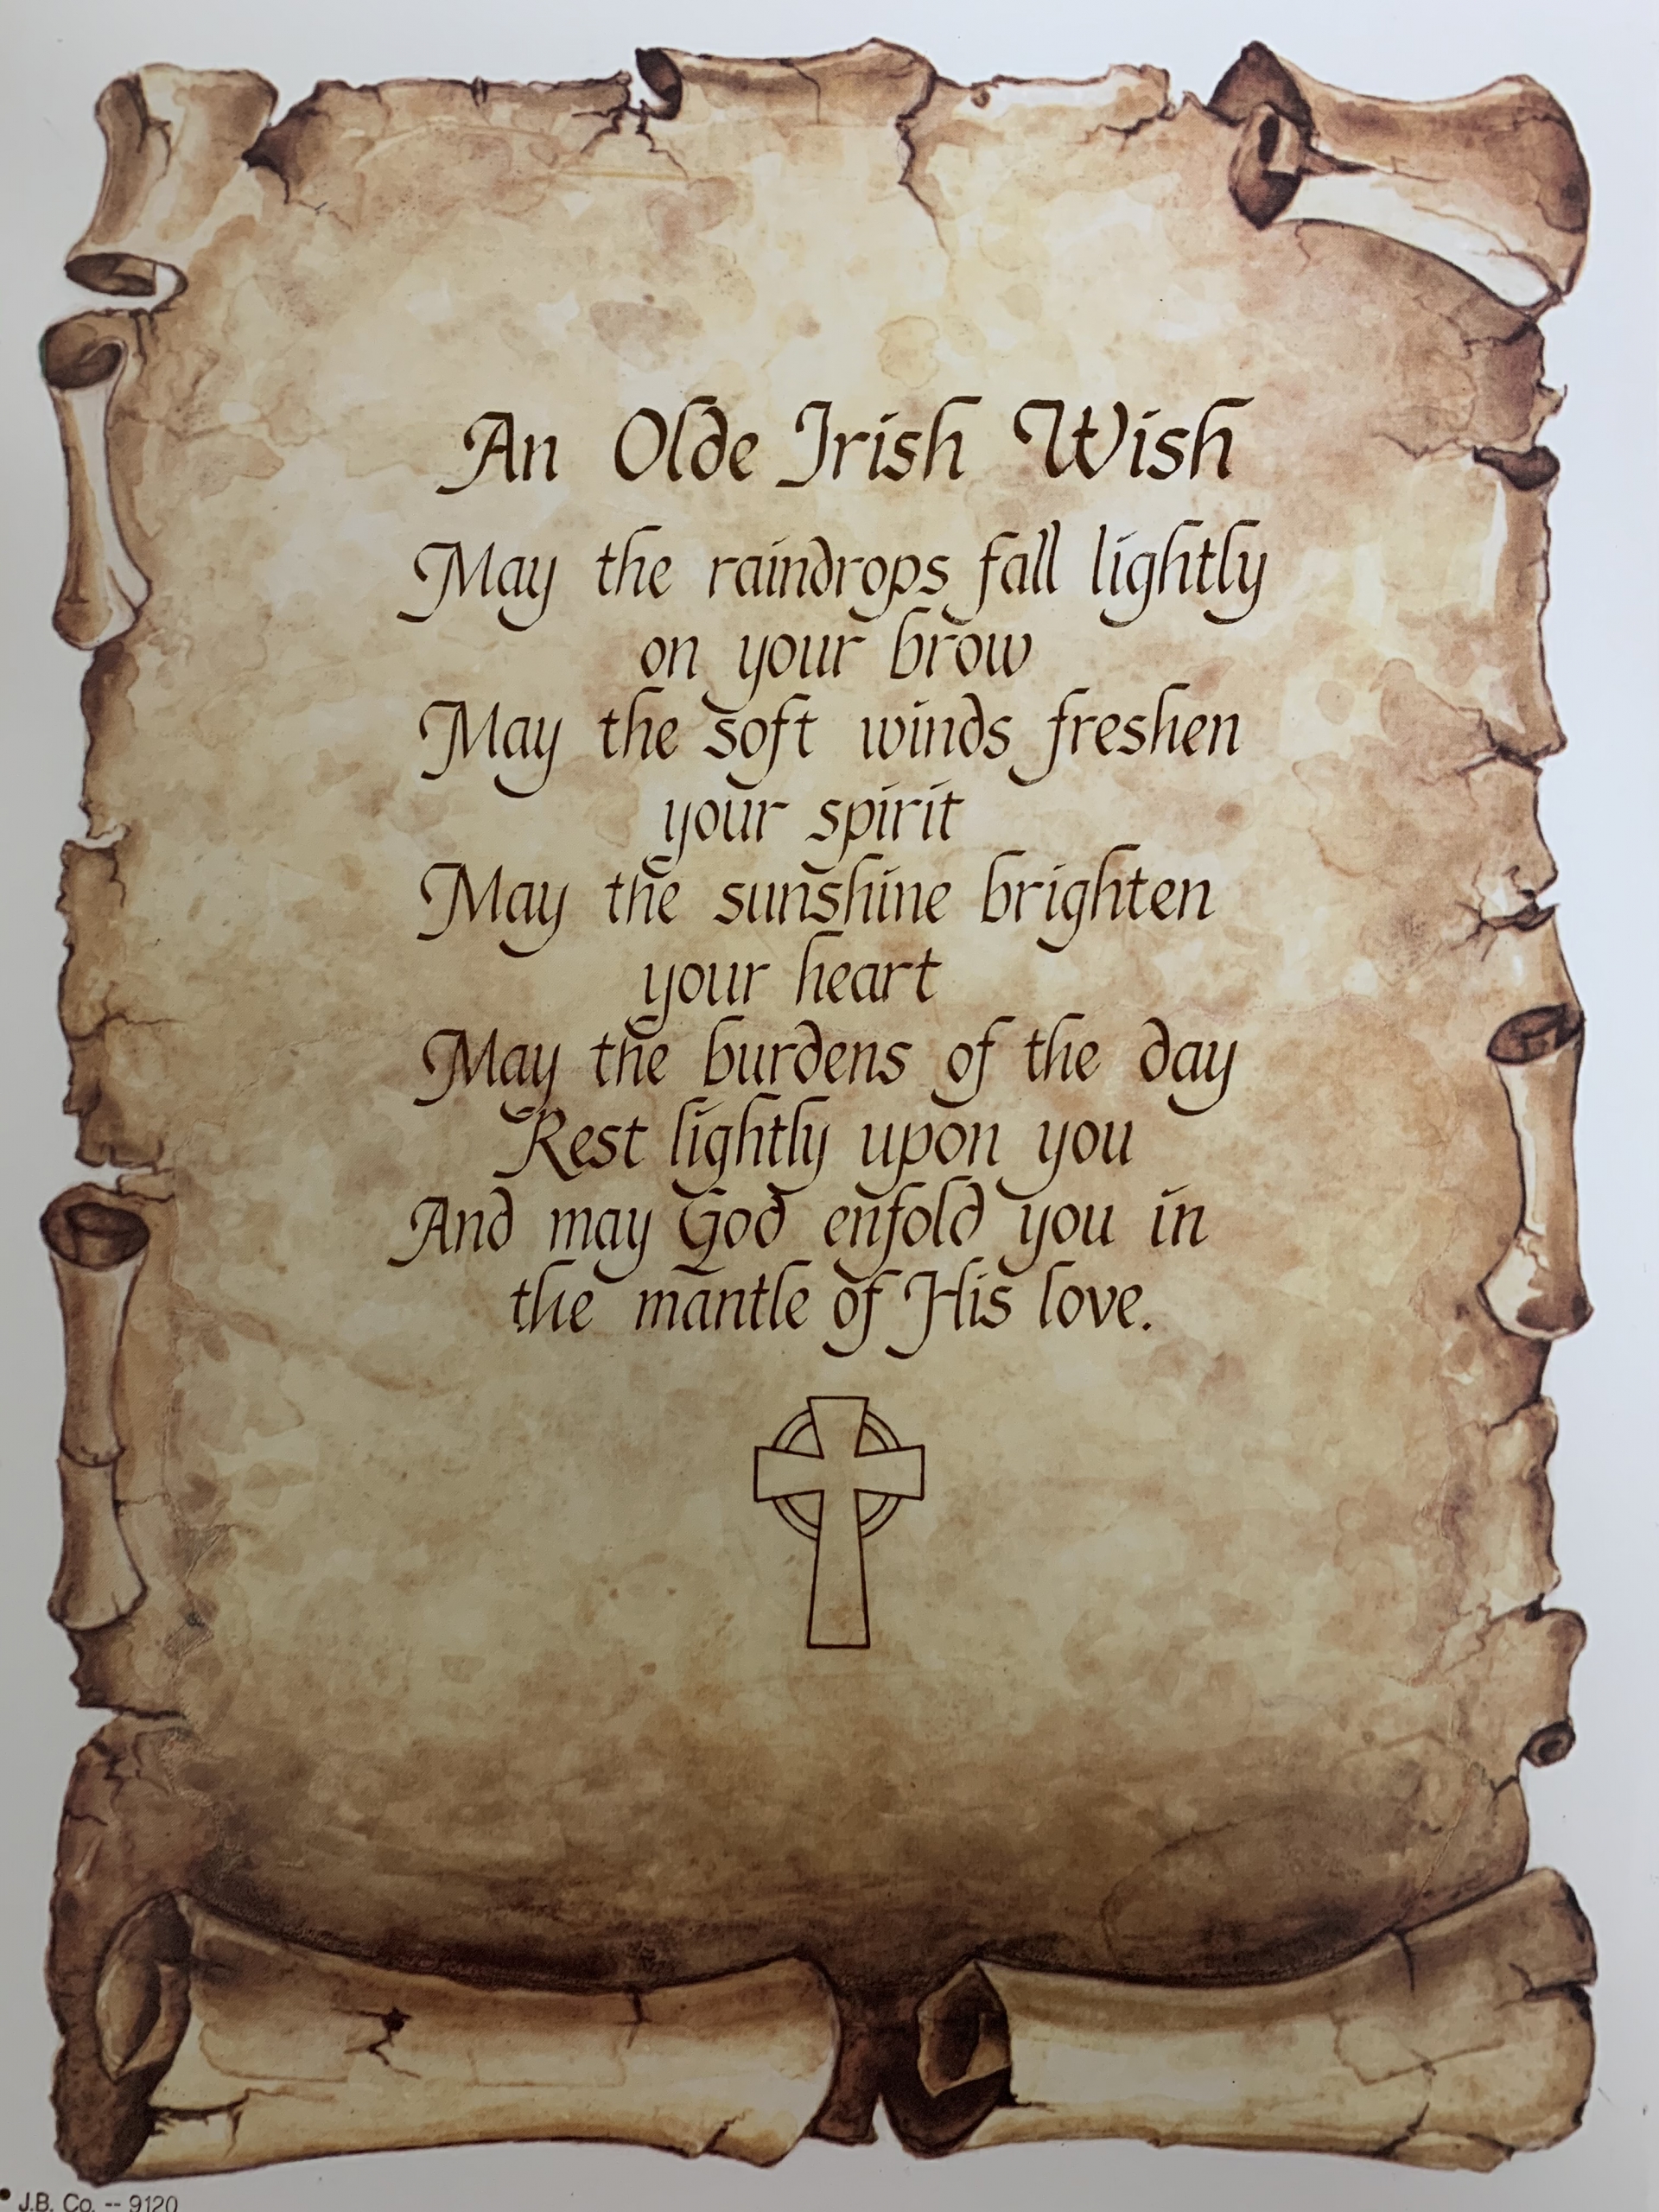 An Olde Irish Wish
May the raindrops fall lightly
on your brow
May the soft winds freshen
your spirit
May the sunshine brighten
your heart
May the burdens of the day
Rest lightly upon you
And may God enfold you in
the mantle of His love.
• J.B. Co. -- 9120